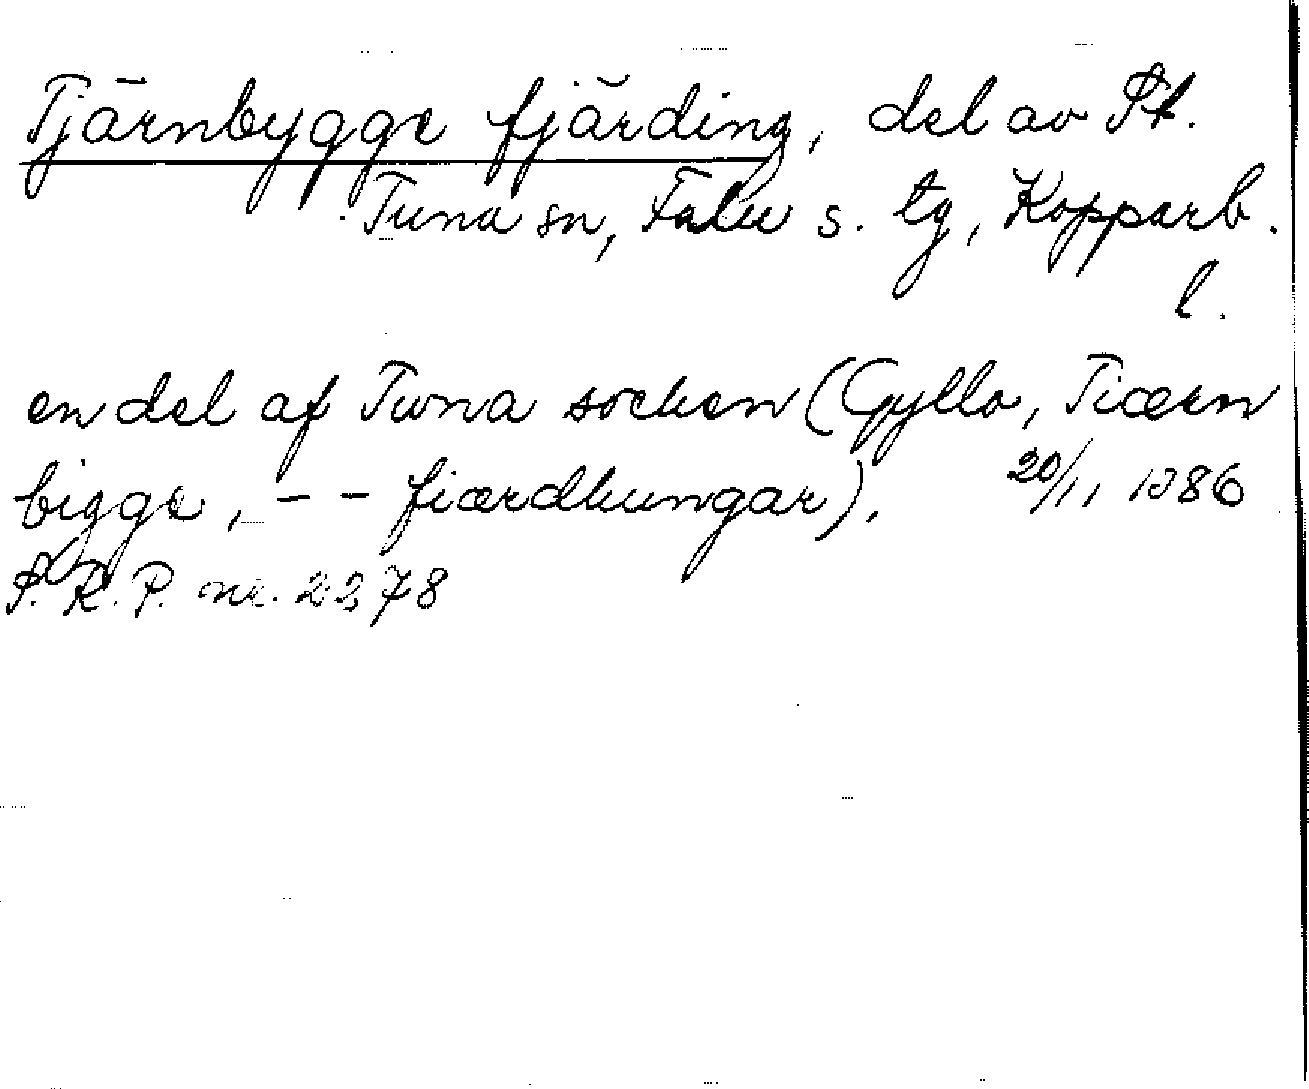 Tjärnbygge fjärding, del av St.
Tuna sn, Falu s. tg, Kopparb.
l.
en del af Tuna socken (Gyllo, Tiærn
bigge, - - fiærdhungar), 20/11 1386
S. R. P. nr. 2278